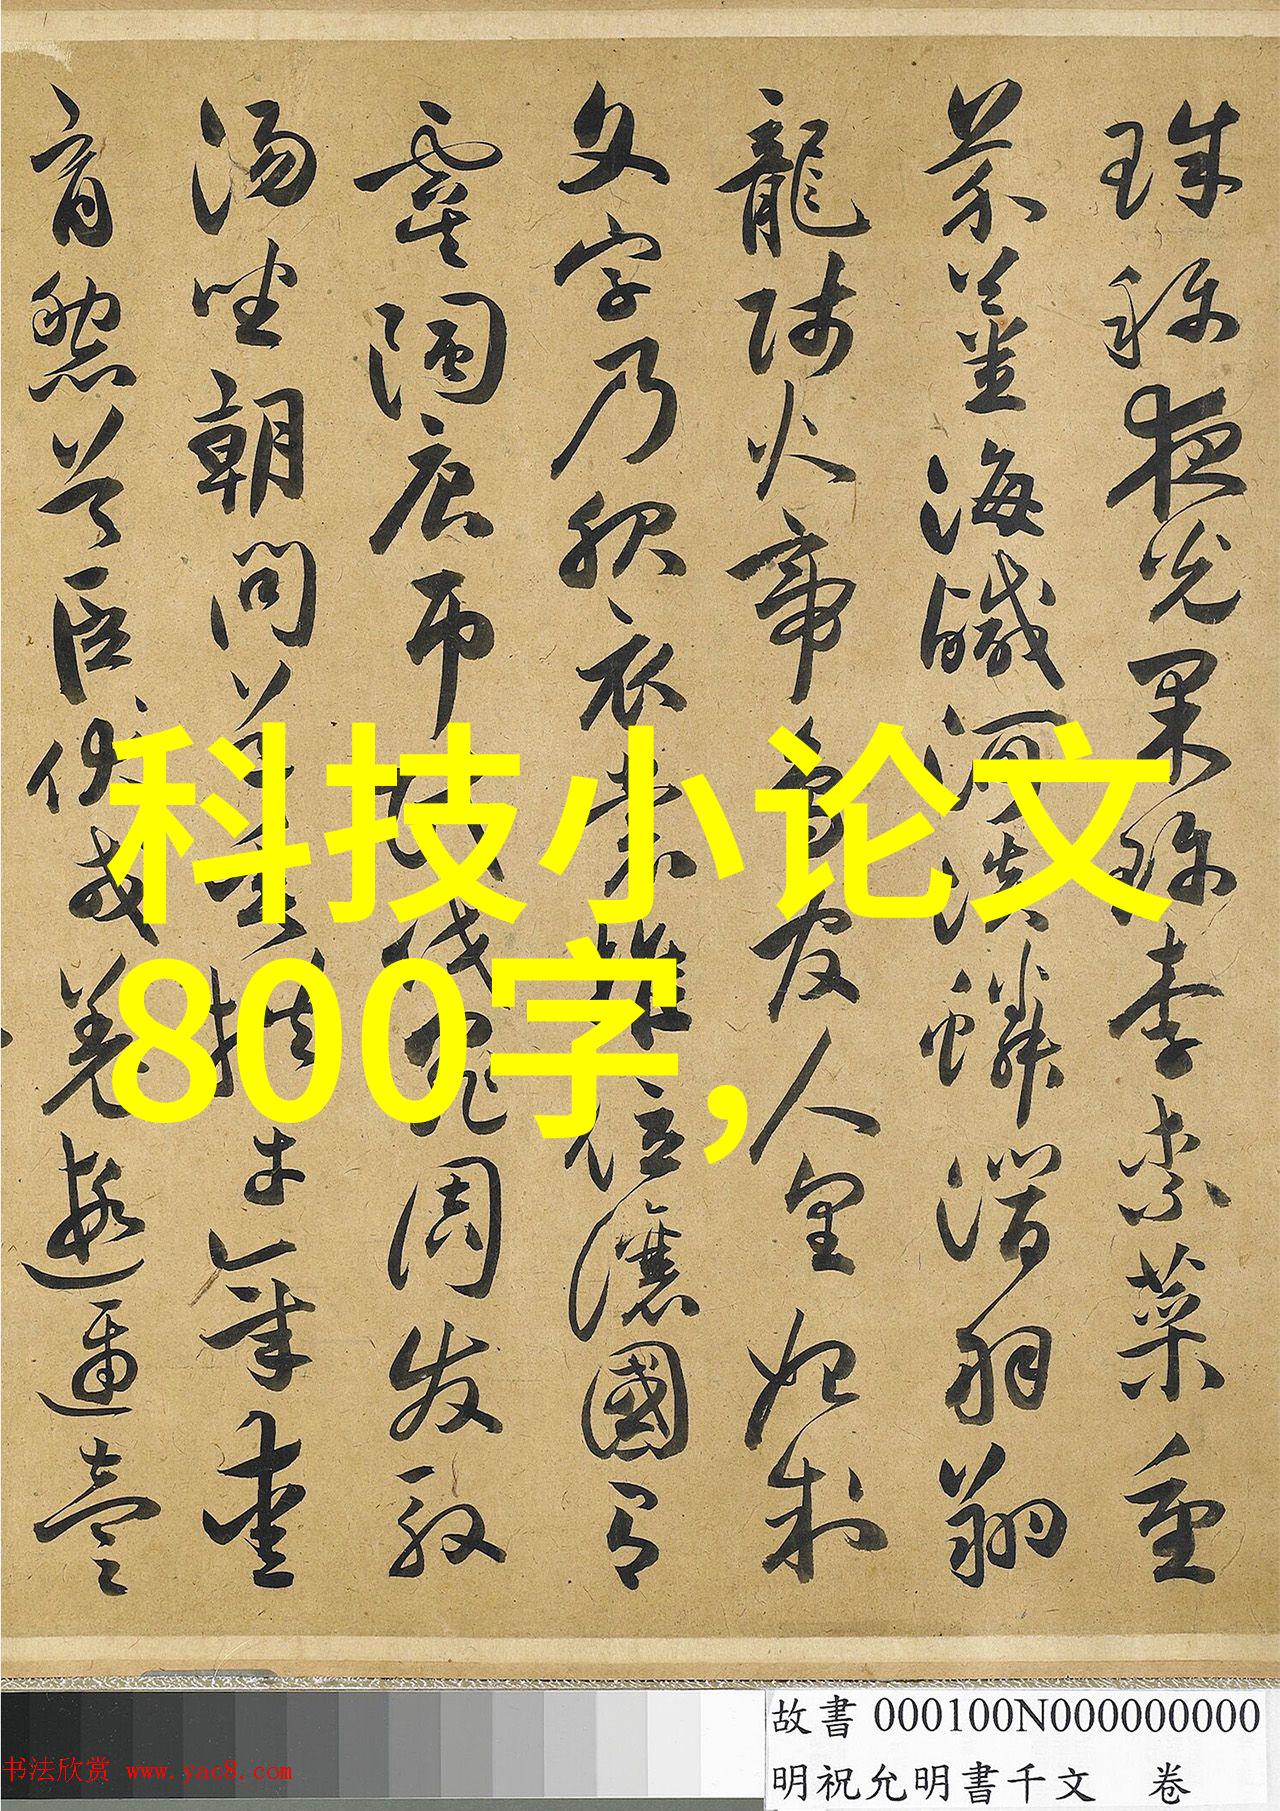 珠稱夜光果珍李柰菜重
芥薑海鹹河淡鱗潛羽翔
龍師火帝鳥官人皇始制
文字乃服衣裳推位讓國有
虞陶唐弔民伐罪周發殷
湯坐朝問道垂拱平章愛
育黎首臣伏戎羌遐邇壹
科技小论文
800字,
故書 000100N000000000
明祝允明書千文 卷
书法欣赏 www.yac8.com